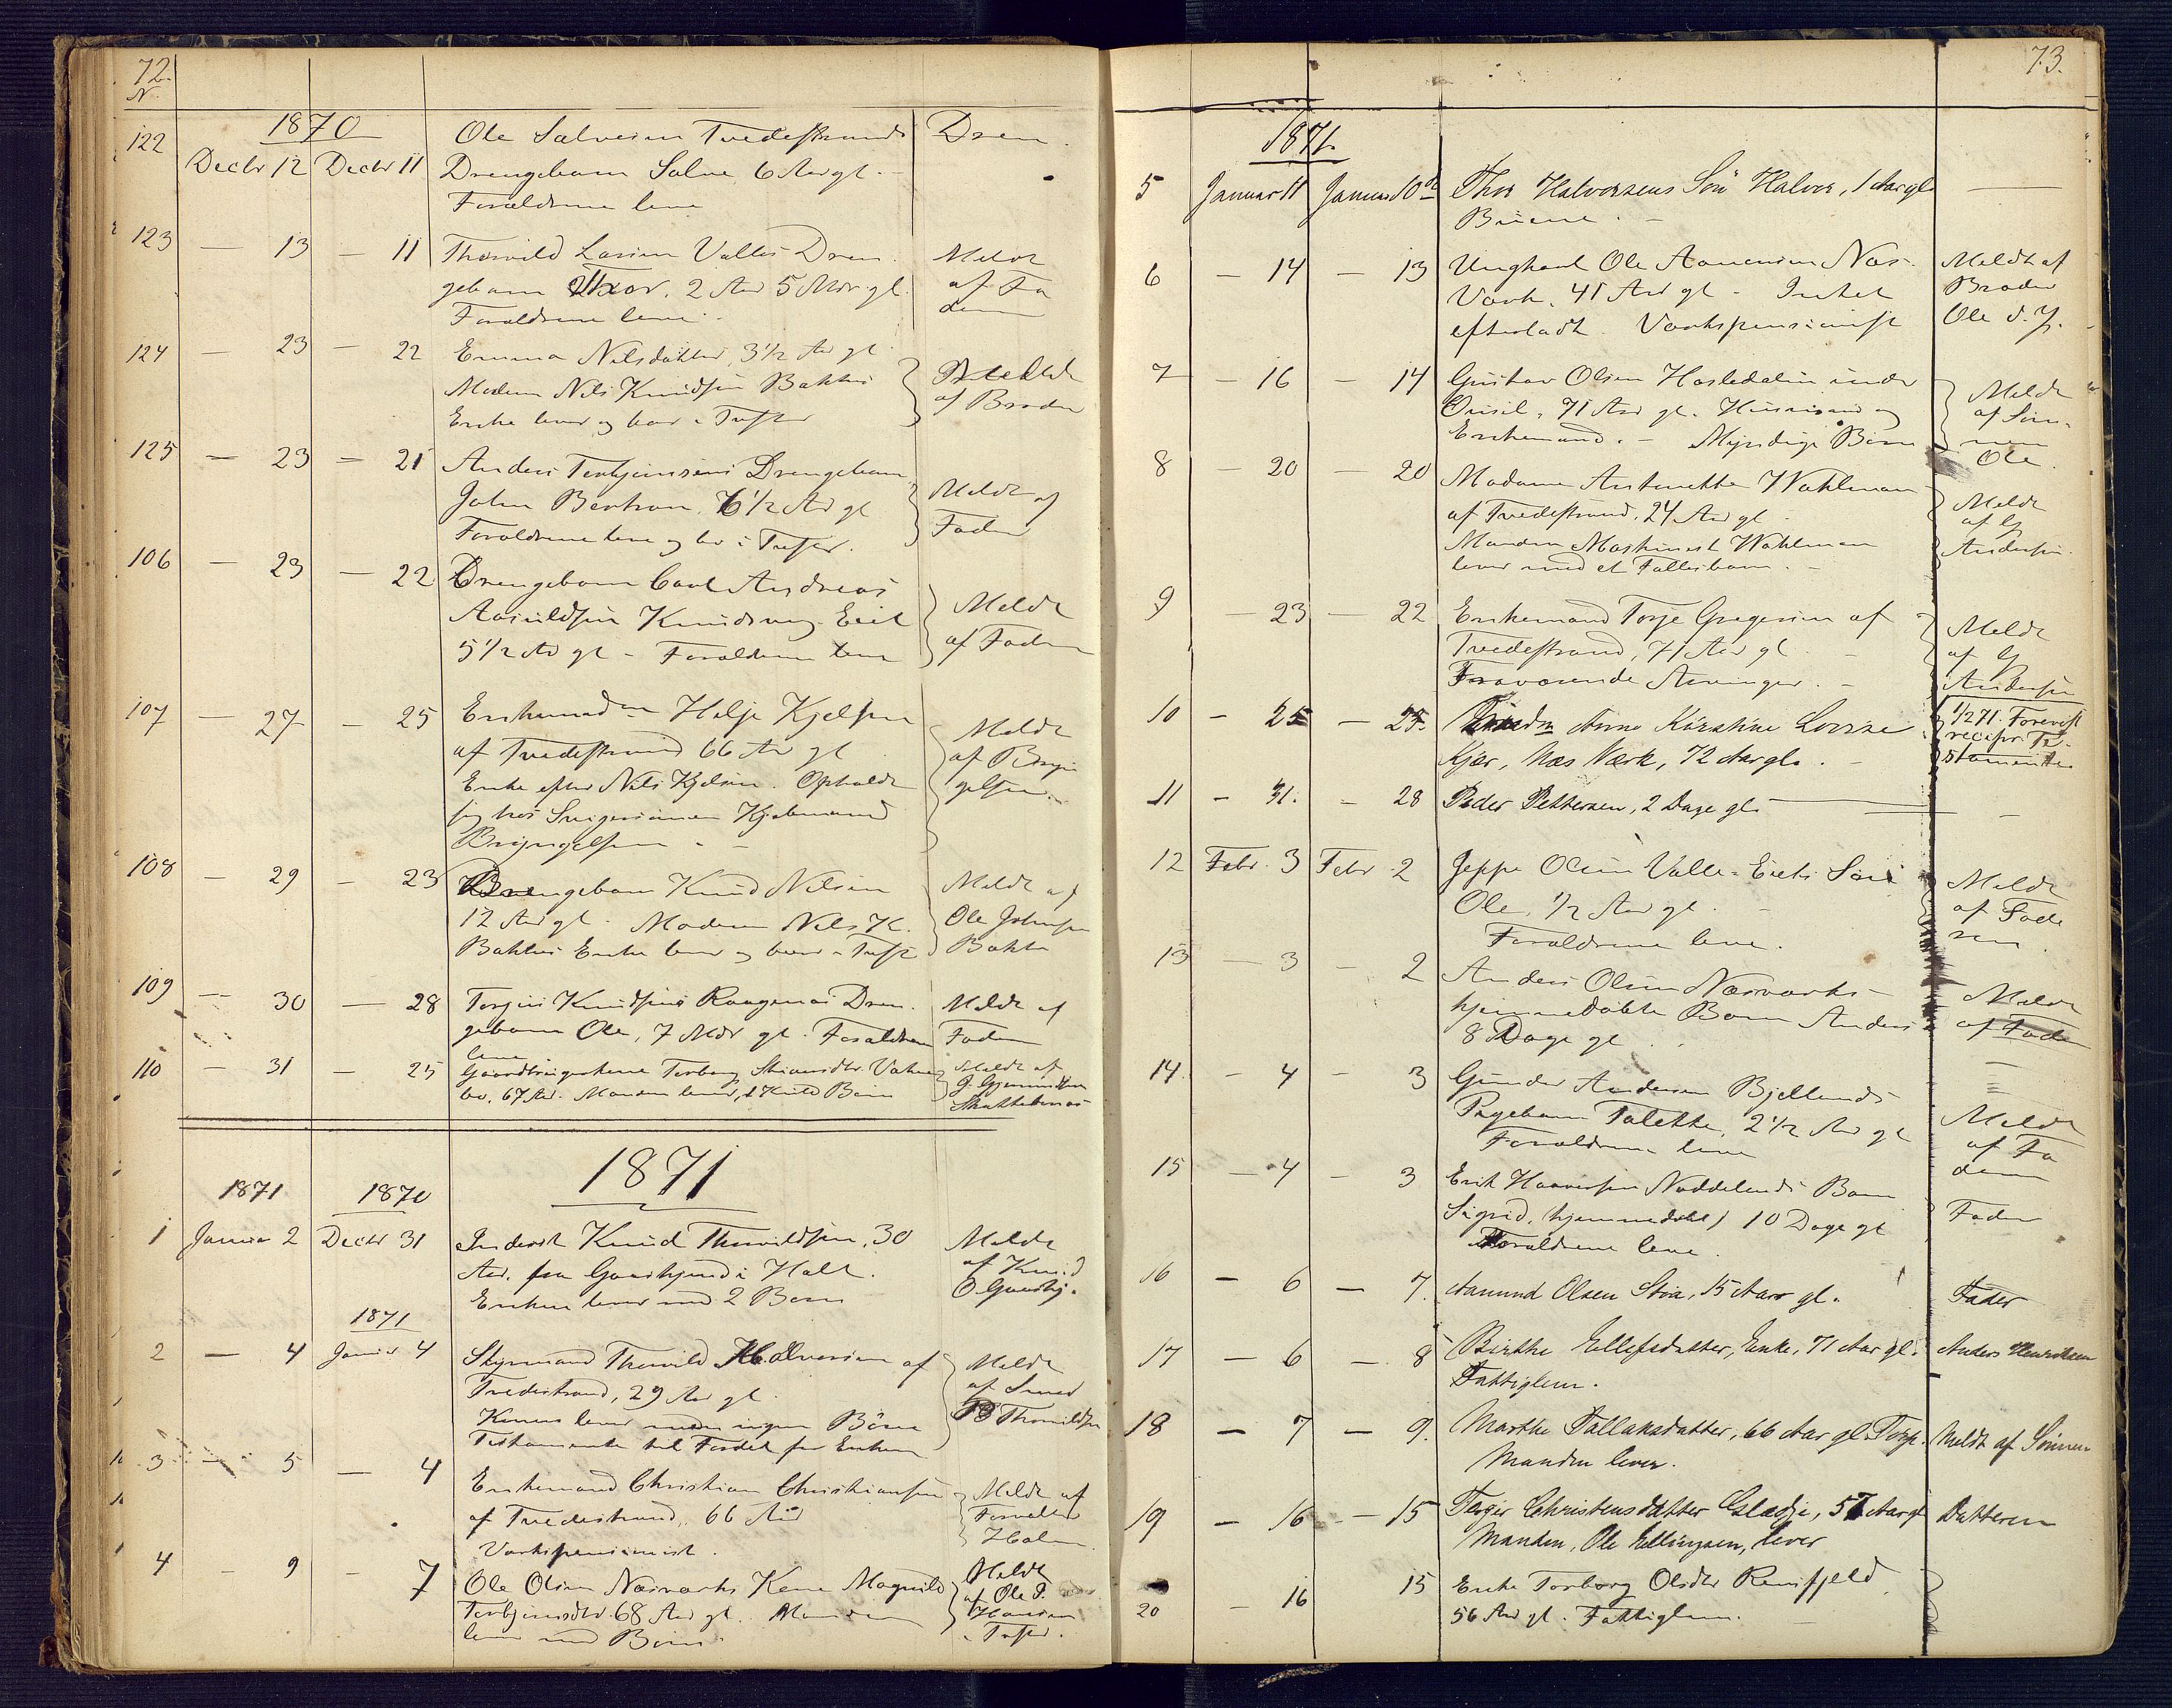 72.
N.
1870
122 Decbr 12 Decbr 11 Ole Salvesen Tvedestrands
Drengebarn Salve 6 Aar gl.
Forældrene leve
123 — 13 — 11 Thorvild Larsen Valles Dren-
gebarn Thor, 2 Aar 5 Mdr gl.
Forældrene leve
Meldt
af Fa
deren
124 — 23 — 22 Emma Nilsdatter, 3 1/2 Aar gl
Modern Nils Knudsen Bakkes
Enke lever og boer i
Meldt
af Broder
125 — 23 — 21 Anders Terkjeursens Drengebarn
John Bentson, 6 1/2 Aar gl
Forældrene leve og bo i
Meldt af
Fader
106 — 23 — 22 Drengebarn Carl Andreas
Aasuldsen Knudsveg Eiet
5 1/2 Aar gl - Forældrene leve
Meldt
af Faderen
107 — 27 — 25 Enkemadm Helje Kjelsen
af Tvedestrand 66 Aar gl
Enke efter Nils Kjelsen. Opholdt
sig hos Svigersønnen
Bryngelsen
Meldt
af Bryn
gelsen
108 — 29 — 23 Drengebarn Knud Nilsen
12 Aar gl. Moderen Nils K.
Bakkes Enke lever og boer i
Meldt af
Ole Johnsen
Bakke
109 — 30 — 28 Terjus Knudsens Raagenæs Dren-
gebarn Ole, 7 Mdr gl. Forældrene
leve
Meldt af
Faderen
110 — 31 — 25 Torborg
67 Aar. Manden lever,
Meldt af
1871
1871 1870
1 Januar 2 Decbr 31 Inderst Knud Thorvildsen, 30
Aar, fra i Holt.
Enken lever med 2 Børn
Meldt
af Knud
1871
2 — 4 Januar 4 Styrmand Thorvild Halvorsen af
Tvedestrand, 29 Aar gl.
Konen lever men ingen Børn
Testamente til Fordel for Enken
Meldt
af Svend
Thorvildsen
3 — 5 — 4 Enkemand Christian Christiansen
af Tvedestrand, 66 Aar
Værkspensionist.
Meldt af
Forvalter
Holm
4 — 9 — 7 Ole Olsen Næsværks Kone Magnild
Terkjeursdtr. 68 Aar gl. Manden
lever med Børn
Meldt
af Ole J.
Hansen
73.
1871.
5 Januar 11 Januar 10de Thor Halvorsens Søn Halvor, 1 Aar gl
6 — 14 — 13 Ungkarl Ole Aanensen Næs
Værk, 41 Aar gl - Intet
efterladt. Værkspensionist
Meldt af
Broder
Ole d. y.
7 — 16 — 14 Gustav Olsen Hasledalen under
71 Aar gl. Husmand og
Enkemand. - Myndige Børn
Meldt
af Søn-
nen
Ole.
8 — 20 — 20 Madame Antonette Wahlman
af Tvedestrand. 24 Aar gl
Manden Maskinist Wahlman
lever med et Fællesbarn.
Meldt
af G
Andersen.
9 — 23 — 22 Enkemand Torje Gregersen af
Tvedestrand, 71 Aar gl.
Fraværende Arvinger.
Meldt
af G
Andersen
10 — 25 — 25. Anne Kirstine Lovise
Kjær, Næs Værk, 72 Aar gl.
1/2 71. Forevist
recipr. Te-
stamente
11 — 31. — 28 Peder Pettersen, 2 Dage gl.
12 Febr. 3 Febr 2 Jeppe Olsen Valle-Eiets Søn
Ole, 1/2 Aar gl.
Forældrene leve.
Meldt
af Fade
ren
13 — 3 — 2 Anders Olsen Næsværks
hjemmedøbte Barn Anders
8 Dage gl
Meldt
af Fader
14 — 4 — 3 Gunder Andersen Bjellands
Pigebarn Talette, 2 1/2 Aar gl
Forældrene leve
Meldt
af Fa
deren
15 — 4 — 3 Erik Haaversen Noddelands Barn
Sigrid, hjemmedøbt, 10 Dage gl
Forældrene leve.
Fader
16 — 6 — 7. Aanund Olsen Stia, 15 Aar gl.
Fader
17 — 6 — 8 Birthe Ellefsdatter, Enke, 71 Aar gl.
Fattiglem.
Anders Henriksen
18 — 7 — 9. Marthe Tallaksdatter, 66 Aar gl. Torp.
Manden lever.
Meldt af Sønnen
19 — 16 — 15 Terjer Christensdatter Gladje, 57 Aar gl
Manden, Ole Ellingsen, lever
Datteren
20 — 16 15 Enke Torborg Olsdtr Rensfjeld
56 Aar gl. Fattiglem.